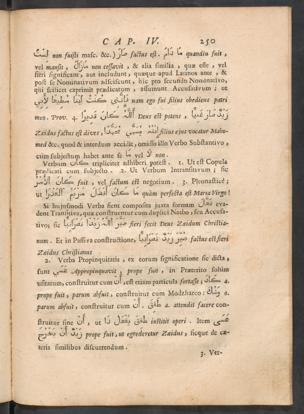 CAP. IV. 250
لَيْسَتْ non fuisti masc. &c.) صَارَ factus est. مَا دَامَ quamdiu fuit,
vel mansit, مَا زَالَ non cessavit, & alia similia, quæ esse, vel
fieri significant, aut includunt, quæque apud Latinos ante, &
post se Nominativum adsciscunt, hic pro secundo Nominativo,
qui scilicet exprimit prædicatum, assumunt Accusativum; ut
فَإِنِّي كُنْتُ ابْنًا مُطِيعًا لِأَبِي nam ego fui filius obediens patri
meo. Prov. 4. اَللّٰه كَانَ قَدِيرًا Deus est potens, زَيْدٌ صَارَ غَنِيًّا
Zaidus factus est dives, اِبْنُهُ يُسَمَّى مُحَمَّدًا filius ejus vocatur Mahu-
med &c. quod & interdum accidit, omisso illo Verbo Substantivo,
cùm subjectum habet ante se مَا vel لَا non.
Verbum كَانَ tripliciter adhiberi potest. 1. Ut est Copula
prædicati cum subjecto. 2. Ut Verbum Intransitivum; sic
كَانَ الْأَمْرُ fuit, vel factum est negotium. 3. Pleonasticè;
ut مَا كَانَ أَفْضَلَ مَرْيَمَ الْعَذْرَاءَ quàm perfecta est Maria Virgo!
Si hujusmodi Verba fient composita juxta formam فَعَّلَ evadent
Transitiva, quæ construuntur cum duplici Nomine, seu Accusa-
tivo; sic صَيَّرَ اللّٰه زَيْدًا نَصْرَانِيًّا fieri fecit Deus Zaidum Christia-
num. Et in Passiva constructione, صُيِّرَ زَيْدٌ نَصْرَانِيًّا factus est fieri
Zaidus Christianus
2. Verba Propinquitatis, ex eorum significatione sic dicta,
sunt عَسَى Appropinquavit, prope fuit, in Præterito solùm
usitatum, construitur cum أَنْ, est etiam particula fortasse; كَادَ 2.
prope fuit, parum abfuit, construitur cum Modzhareo; وَشَكَ 2.
parum abfuit, construitur cum أَنْ. طَفِقَ 2. attendit facere con-
struitur sine أَنْ, ut طَفِقَ يَفْعَلُ ذَا institit operi. Item عَسَى
زَيْدٌ أَنْ يَخْرُجَ prope fuit, ut egrederetur Zaidus, sicque de cæ-
teris similibus discurrendum.
3. Ver-